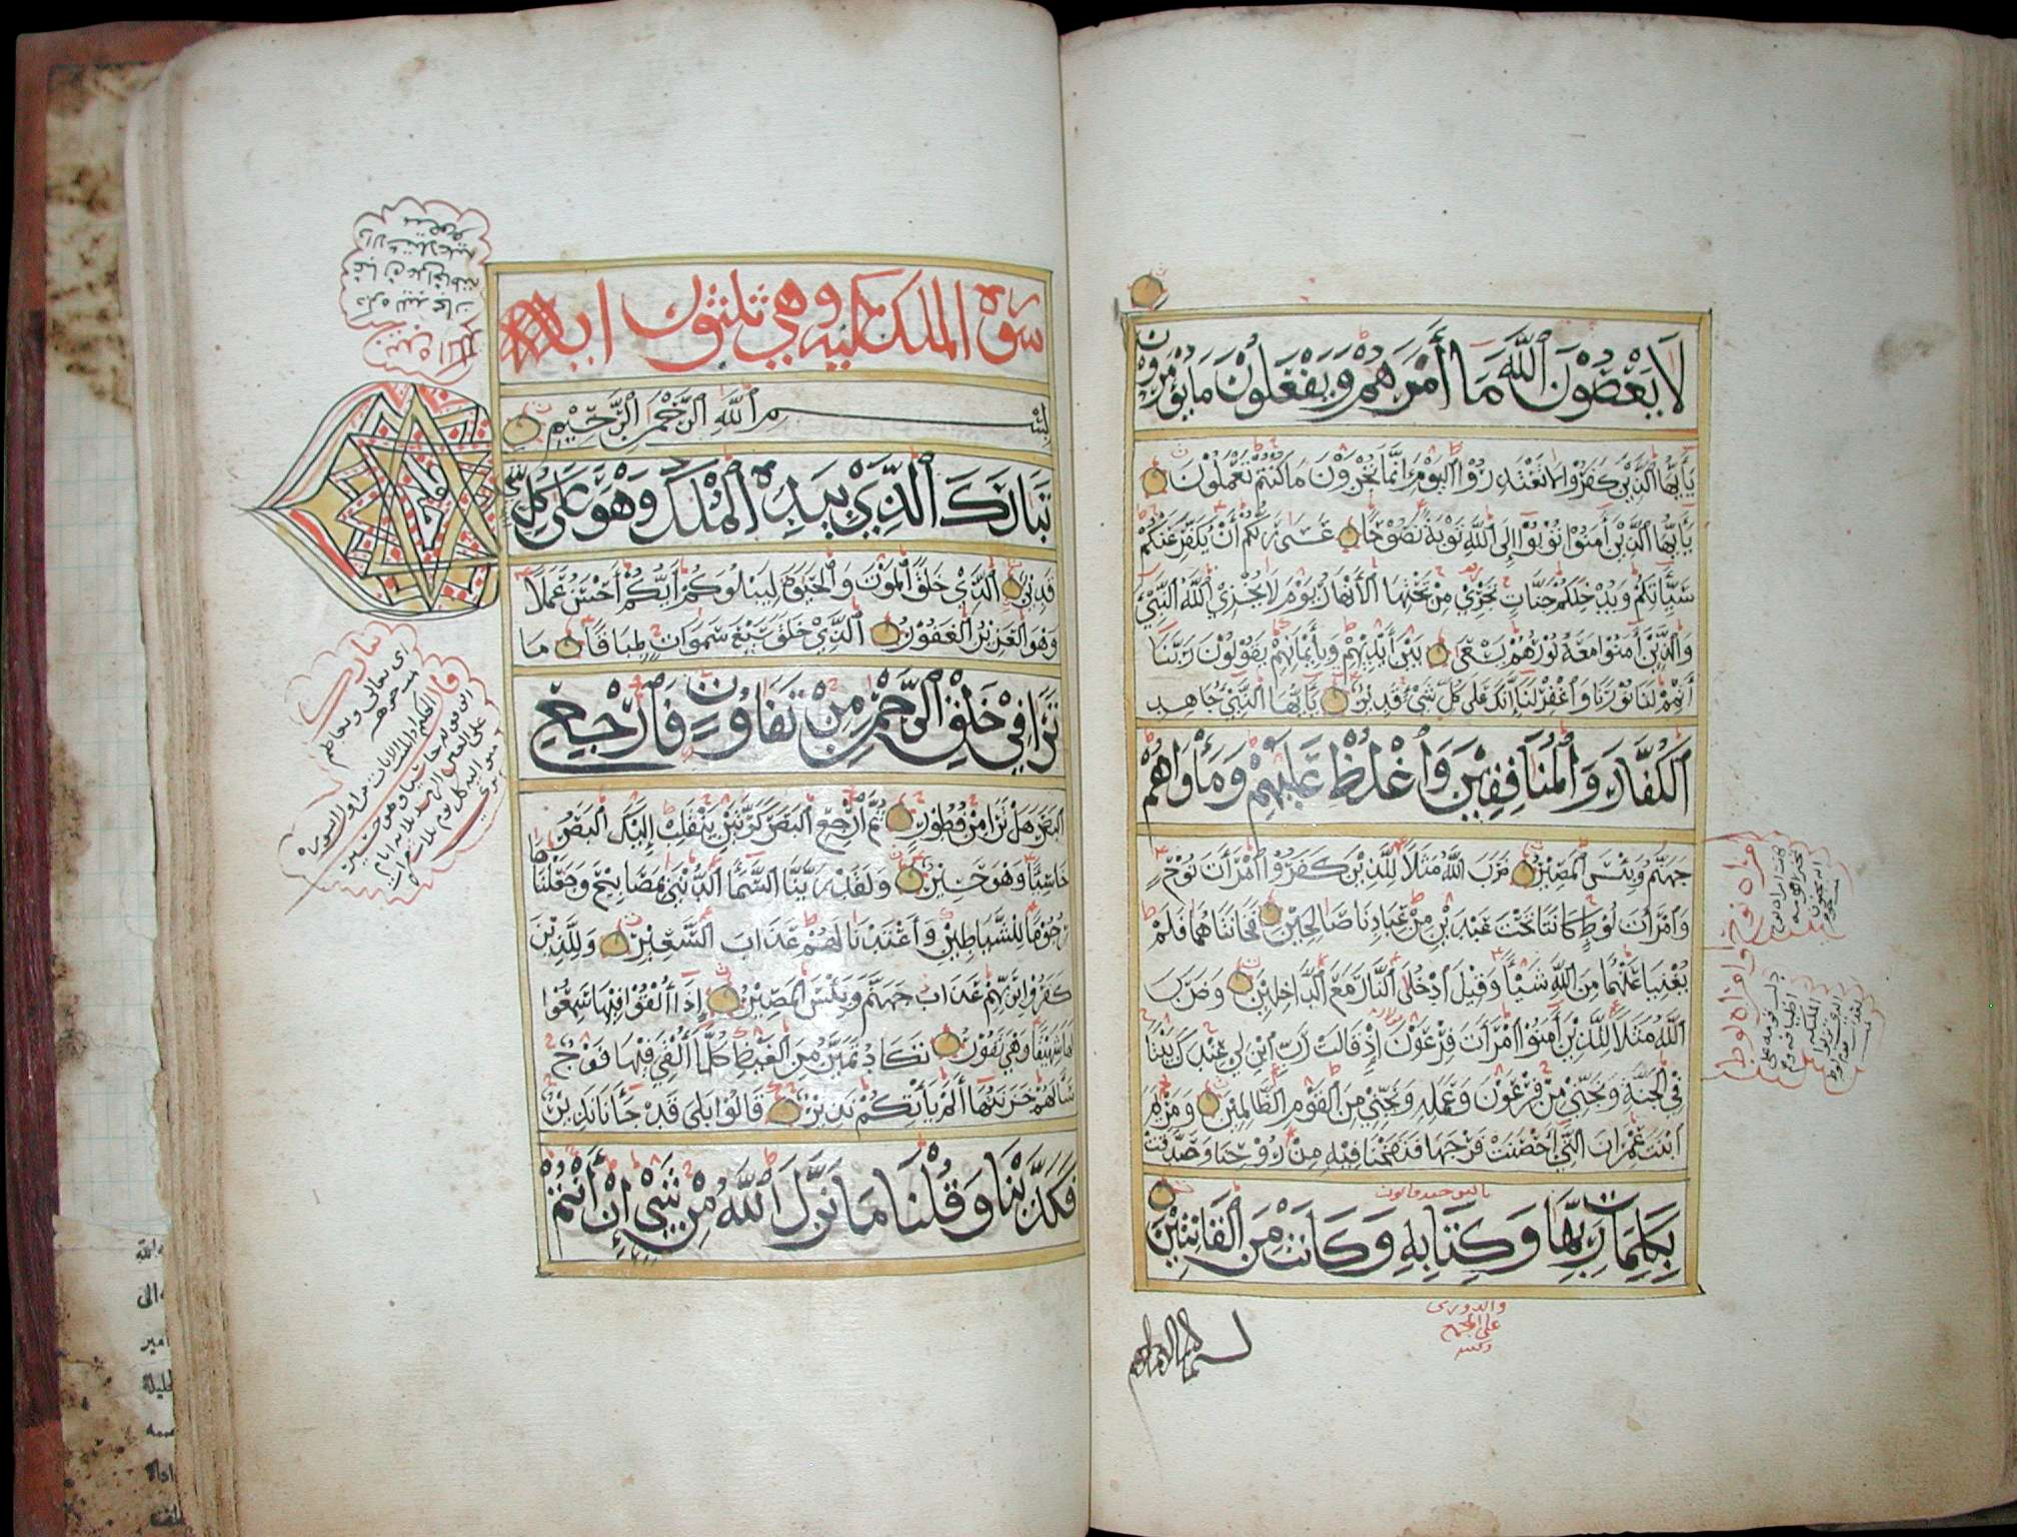 لَا يَعْصُوْنَ ٱللَّهَ مَا أَمَرَهُمْ وَيَفْعَلُوْنَ مَا يُؤْمَرُوْنَ
يَا أَيُّهَا ٱلَّذِيْنَ كَفَرُوْا لَا تَعْتَذِرُوْا ٱلْيَوْمَ إِنَّمَا تُجْزَوْنَ مَا كُنْتُمْ تَعْمَلُوْنَ
يَا أَيُّهَا ٱلَّذِيْنَ أَمَنُوْا تُوْبُوْا إِلَى ٱللَّهِ تَوْبَةً نَصُوْحًا عَسَى رَبُّكُمْ أَنْ يُكَفِّرَ عَنْكُمْ
سَيِّأَتِكُمْ وَيُدْخِلَكُمْ جَنَّاتٍ تَجْرِيْ مِنْ تَحْتِهَا ٱلْأَنْهَارُ يَوْمَ لَا يُخْزِي ٱللَّهُ ٱلنَّبِيَّ
وَٱلَّذِيْنَ أَمَنُوْا مَعَهُ نُوْرُهُمْ يَسْعَى بَيْنَ أَيْدِيْهِمْ وَبِأَيْمَانِهِمْ يَقُوْلُوْنَ رَبَّنَا
أَتْمِمْ لَنَا نُوْرَنَا وَٱغْفِرْ لَنَا إِنَّكَ عَلَى كُلِّ شَيْءٍ قَدِيْرٌ يَا أَيُّهَا ٱلنَّبِيُّ جَاهِدِ
ٱلْكُفَّارَ وَٱلْمُنَافِقِيْنَ وَٱغْلُظْ عَلَيْهِمْ وَمَأْوَاهُمْ
جَهَنَّمُ وَبِئْسَ ٱلْمَصِيْرُ ضَرَبَ ٱللَّهُ مَثَلًا لِلَّذِيْنَ كَفَرُوْا ٱمْرَأَتَ نُوْحٍ
وَٱمْرَأَتَ لُوْطٍ كَانَتَا تَحْتَ عَبْدَيْنِ مِنْ عِبَادِنَا صَالِحَيْنِ فَخَانَتَاهُمَا فَلَمْ
يُغْنِيَا عَنْهُمَا مِنَ ٱللَّهِ شَيْئًا وَقِيْلَ ٱدْخُلَا ٱلنَّارَ مَعَ ٱلدَّاخِلِيْنَ وَضَرَبَ
ٱللَّهُ مَثَلًا لِلَّذِيْنَ أَمَنُوْا ٱمْرَأَتَ فِرْعَوْنَ إِذْ قَالَتْ رَبِّ ٱبْنِ لِيْ عِنْدَكَ بَيْتًا
فِي ٱلْجَنَّةِ وَنَجِّنِيْ مِنْ فِرْعَوْنَ وَعَمَلِهِ وَنَجِّنِيْ مِنَ ٱلْقَوْمِ ٱلظَّالِمِيْنَ وَمَرْيَمَ
ٱبْنَتَ عِمْرَانَ ٱلَّتِيْ أَحْصَنَتْ فَرْجَهَا فَنَفَخْنَا فِيْهِ مِنْ رُوْحِنَا وَصَدَّقَتْ
بِكَلِمَاتِ رَبِّهَا وَكِتَابِهِ وَكَانَتْ مِنَ ٱلْقَانِتِيْنَ
والدورى
على
امراة نوح
وامراة لوط
سورة الملك مكيه وهي ثلثون اية
بِسْمِ ٱللَّهِ ٱلرَّحْمَنِ ٱلرَّحِيْمِ
تَبَارَكَ ٱلَّذِيْ بِيَدِهِ ٱلْمُلْكُ وَهْوَ عَلَى كُلِّ شَيْءٍ
قَدِيْرٌ ٱلَّذِيْ خَلَقَ ٱلْمَوْتَ وَٱلْحَيَوةَ لِيَبْلُوَكُمْ أَيُّكُمْ أَحْسَنُ عَمَلًا
وَهْوَ ٱلْعَزِيْزُ ٱلْغَفُوْرُ ٱلَّذِيْ خَلَقَ سَبْعَ سَمَوَاتٍ طِبَاقًا مَا
تَرَا فِيْ خَلْقِ ٱلرَّحْمَنِ مِنْ تَفَاوُتٍ فَٱرْجِعِ
ٱلْبَصَرَ هَلْ تَرَا مِنْ فُطُوْرٍ ثُمَّ ٱرْجِعِ ٱلْبَصَرَ كَرَّتَيْنِ يَنْقَلِبْ إِلَيْكَ ٱلْبَصَرُ
خَاسِئًا وَهْوَ حَسِيْرٌ وَلَقَدْ زَيَّنَّا ٱلسَّمَآءَ ٱلدُّنْيَى بِمَصَابِيْحَ وَجَعَلْنَاهَا
رُجُوْمًا لِلشَّيَاطِيْنِ وَأَعْتَدْنَا لَهُمْ عَذَابَ ٱلسَّعِيْرِ وَلِلَّذِيْنَ
كَفَرُوْا بِرَبِّهِمْ عَذَابُ جَهَنَّمَ وَبِئْسَ ٱلْمَصِيْرُ إِذَا أُلْقُوْا فِيْهَا سَمِعُوْا
لَهَا شَهِيْقًا وَهْيَ تَفُوْرُ تَكَادُ تَمَيَّزُ مِنَ ٱلْغَيْظِ كُلَّمَا أُلْقِيَ فِيْهَا فَوْجٌ
سَأَلَهُمْ خَزَنَتُهَا أَلَمْ يَأْتِكُمْ نَذِيْرٌ قَالُوْا بَلَى قَدْ جَآءَنَا نَذِيْرٌ
فَكَذَّبْنَا وَقُلْنَا مَا نَزَّلَ ٱللَّهُ مِنْ شَيْءٍ إِنْ أَنْتُمْ
تبارك
اى تعالى وتعاظم